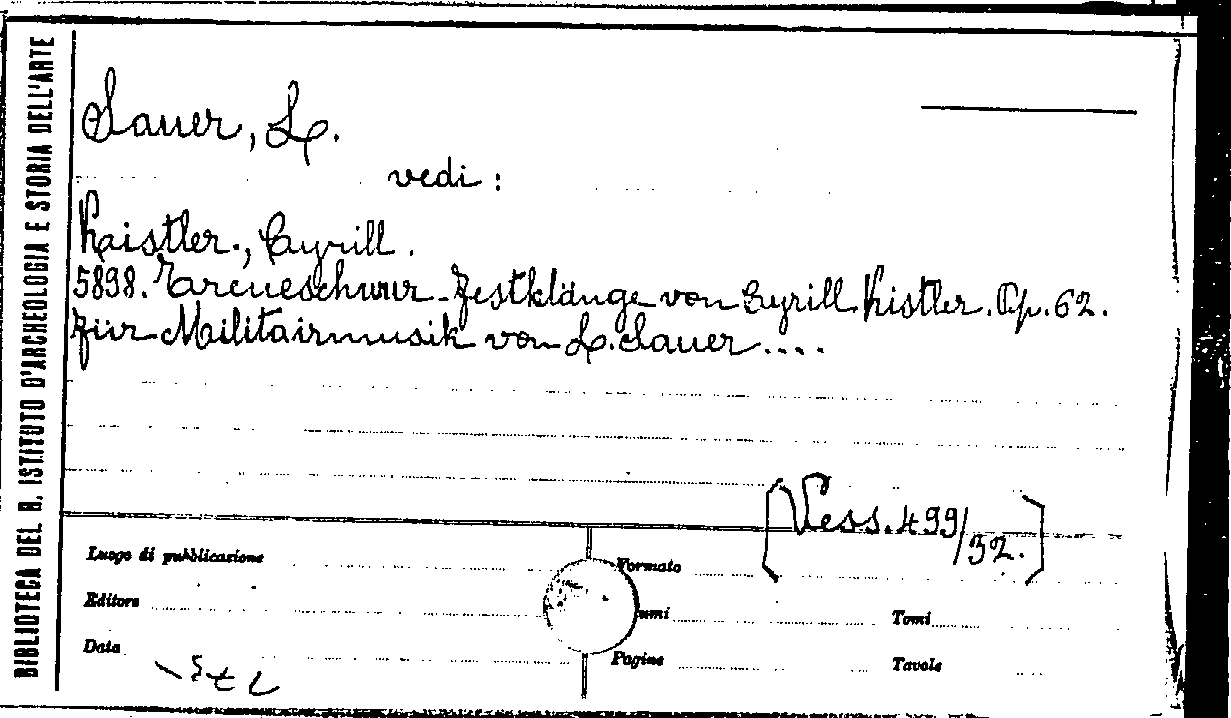 BIBLIOTECA DEL R. ISTITUTO D'ARCHEOLOGIA E STORIA DELL'ARTE
Sauer, L.
vedi :
Kistler., Cyrill.
5898. Treueschwur. Festklänge von Cyrill Kistler. Op. 62.
Für Militairmusik von L. Sauer....
[Vess. 499/32.]
Luogo di pubblicazione
Formato
Editore
umi
Tomi
Data
Pagine
Tavole